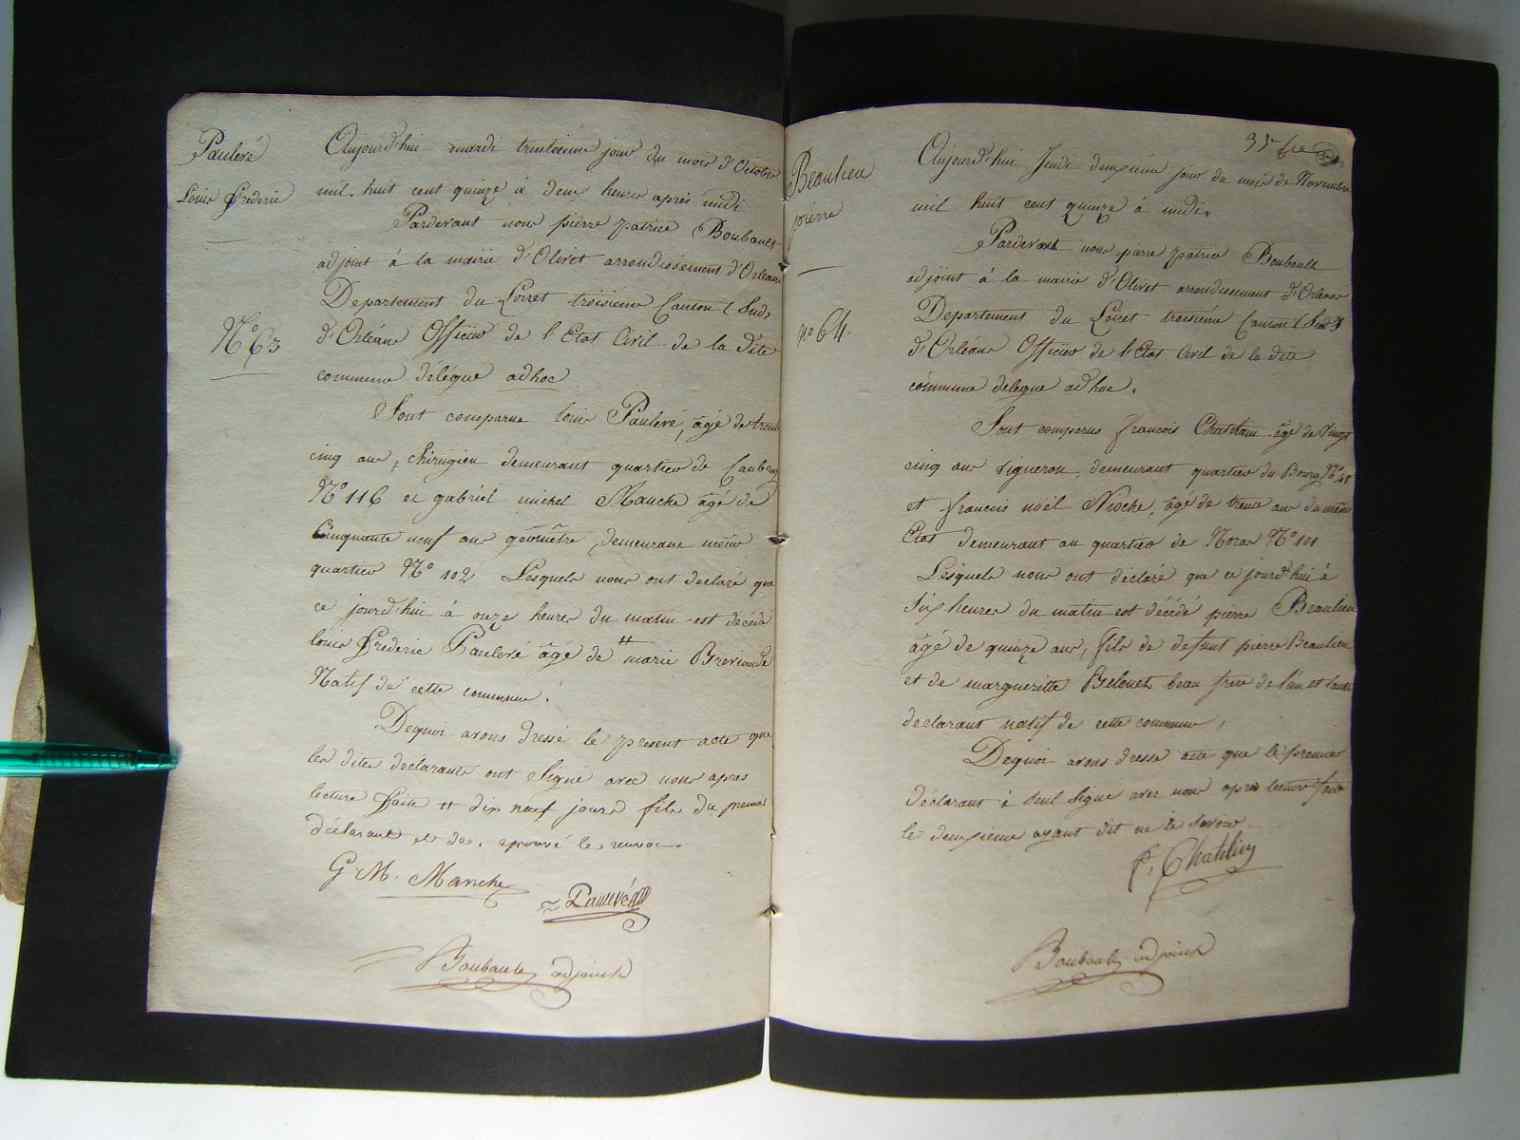 Pauleré
Louis Frederic
N.o 63
Aujourd'hui mardi trentieme jour du mois d'Octobre
mil huit cent quinze à deux heures après midi
Pardevant nous pierre patrice Boubault
adjoint à la mairie d'Olivet arrondissement d'Orleans
Departement du Loiret troisieme Canton Sud
d'Orléans Officier de l'Etat Civil de la dite
commune délégué adhoc
Sont comparus louis Pauleré, agé de trente
cinq ans, chirugien demeurant quartier de
N.o 116 et gabriel michel Manche âgé de
Cinquante neuf ans géomètre demeurant même
quartier N.o 102 Lesquels nous ont declaré que
ce jourd'hui à onze heures du matin est décédé
louis Frederic Pauleré âgé de # marie
Natif de cette commune.
Dequoi avons dressé le present acte que
les dites declarants ont Signé avec nous apres
lecture faite # dix neuf jours fils du premier
déclarant et de. aprouvé le renvoi.
G. M. Manche
Pauleré
Boubault adjoint
31e
Beaulieu
pierre
n.o 64.
Aujourd'hui Jeudi deuxieme jour du mois de Novembre
mil huit cent quinze à midi.
Pardevant nous pierre patrice Boubault
adjoint à la mairie d'Olivet arrondissement d'Orleans
Departement du Loiret troisieme Canton Sud
d'Orléans Officier de l'Etat Civil de la dite
commune délegué ad'hoc.
Sont comparus francois Chatelain âgé de Vingt
cinq ans vigneron, demeurant quartier du Bourg N.o
et francois noël Nioche, âgé de trente ans du même
Etat demeurant au quartier de N.o 101
Lesquels nous ont déclaré que ce jourd'hui à
Six heures du matin est décédé pierre Beaulieu
âgé de quinze ans, fils de défunt pierre Beaulieu
et de margueritte beau frere de l'un et l'autre
declarant natif de cette commune,
Dequoi avons dressé acte que le premier
déclarant à seul signé avec nous après lecture faite
le deuxieme ayant dit ne le savoir
Boubault adjoint